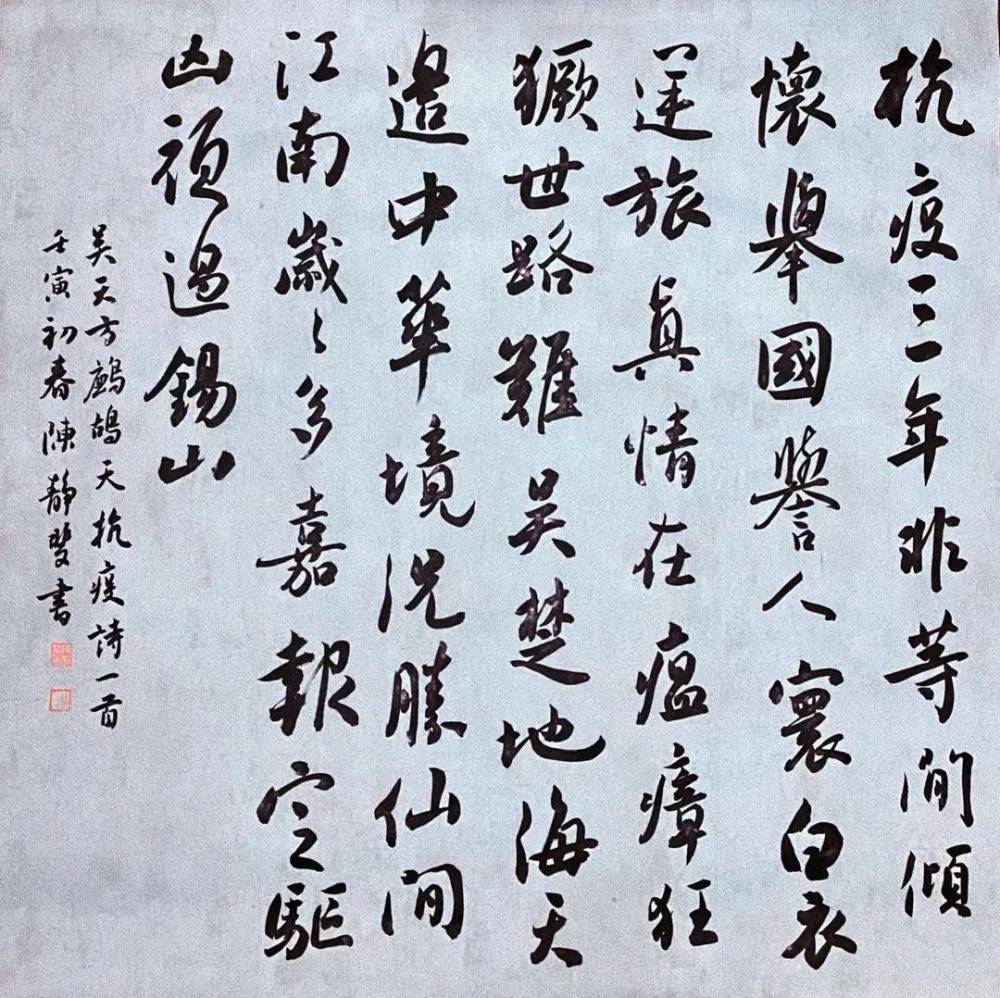 抗疫三年非等閒傾
懷舉國譽人寰白衣
逆旅真情在瘟瘴狂
獗世路難吴楚地海天
邊中華境况勝仙間
江南歲々多嘉報定驅
凶頑過錫山
吴天方鷓鴣天抗疫詩一首
壬寅初春陳静斐書